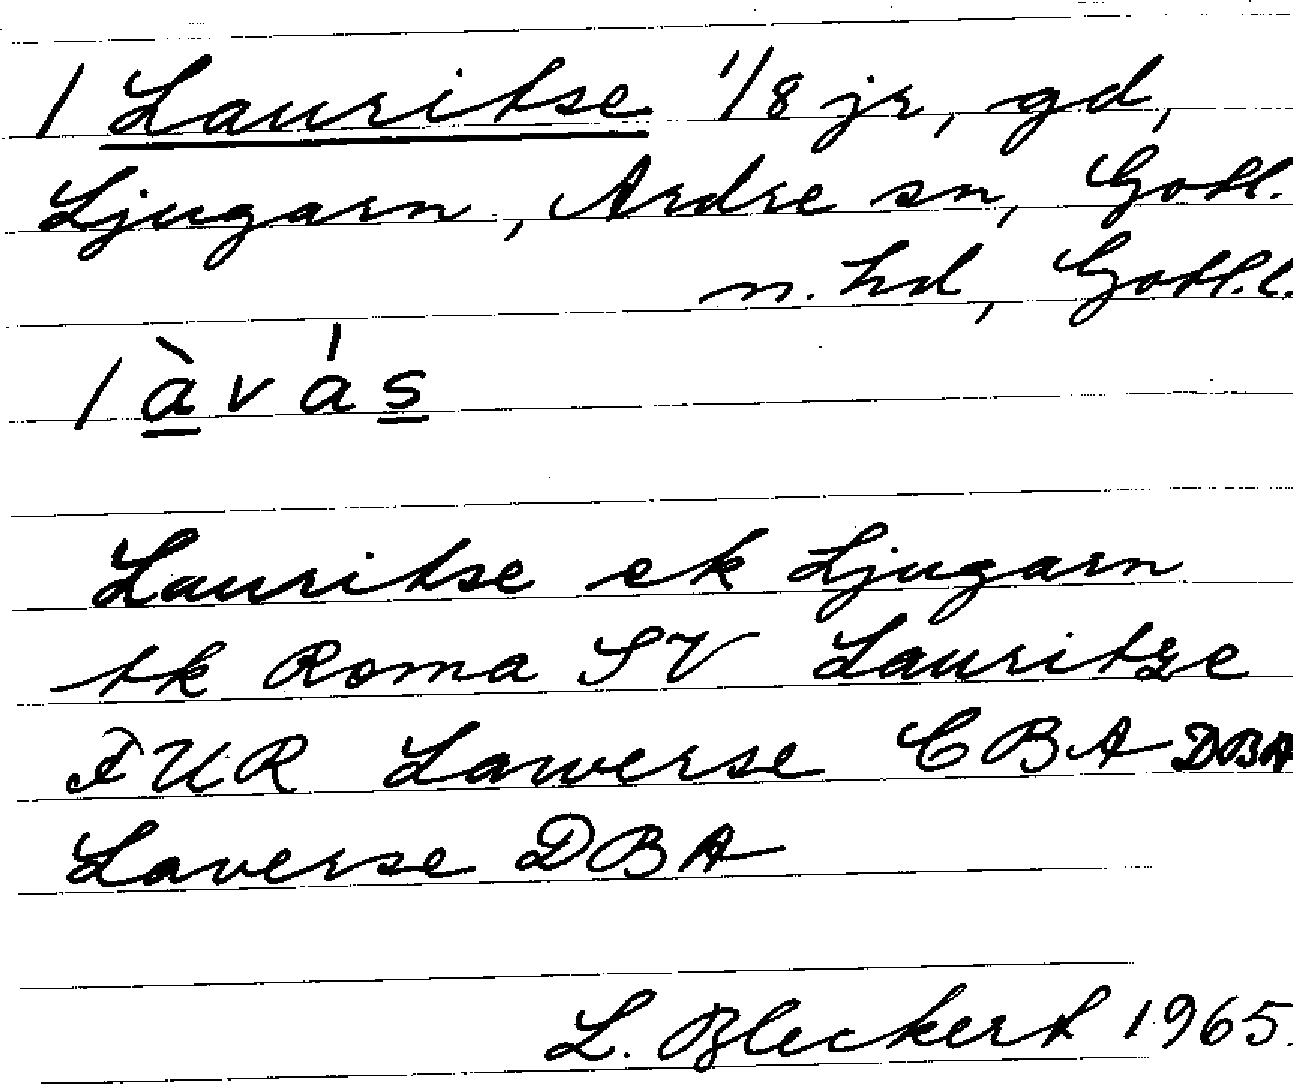 1 Lauritse 1/8 jr, gd,
Ljugarn, Ardre sn, Gotl.
n. hd, Gotl.l.
làvás
Lauritse ek Ljugarn
tk Roma SV Lauritze
FUR Lawerse CBA DBA
Laverse DBA
L. Bleckert 1965.